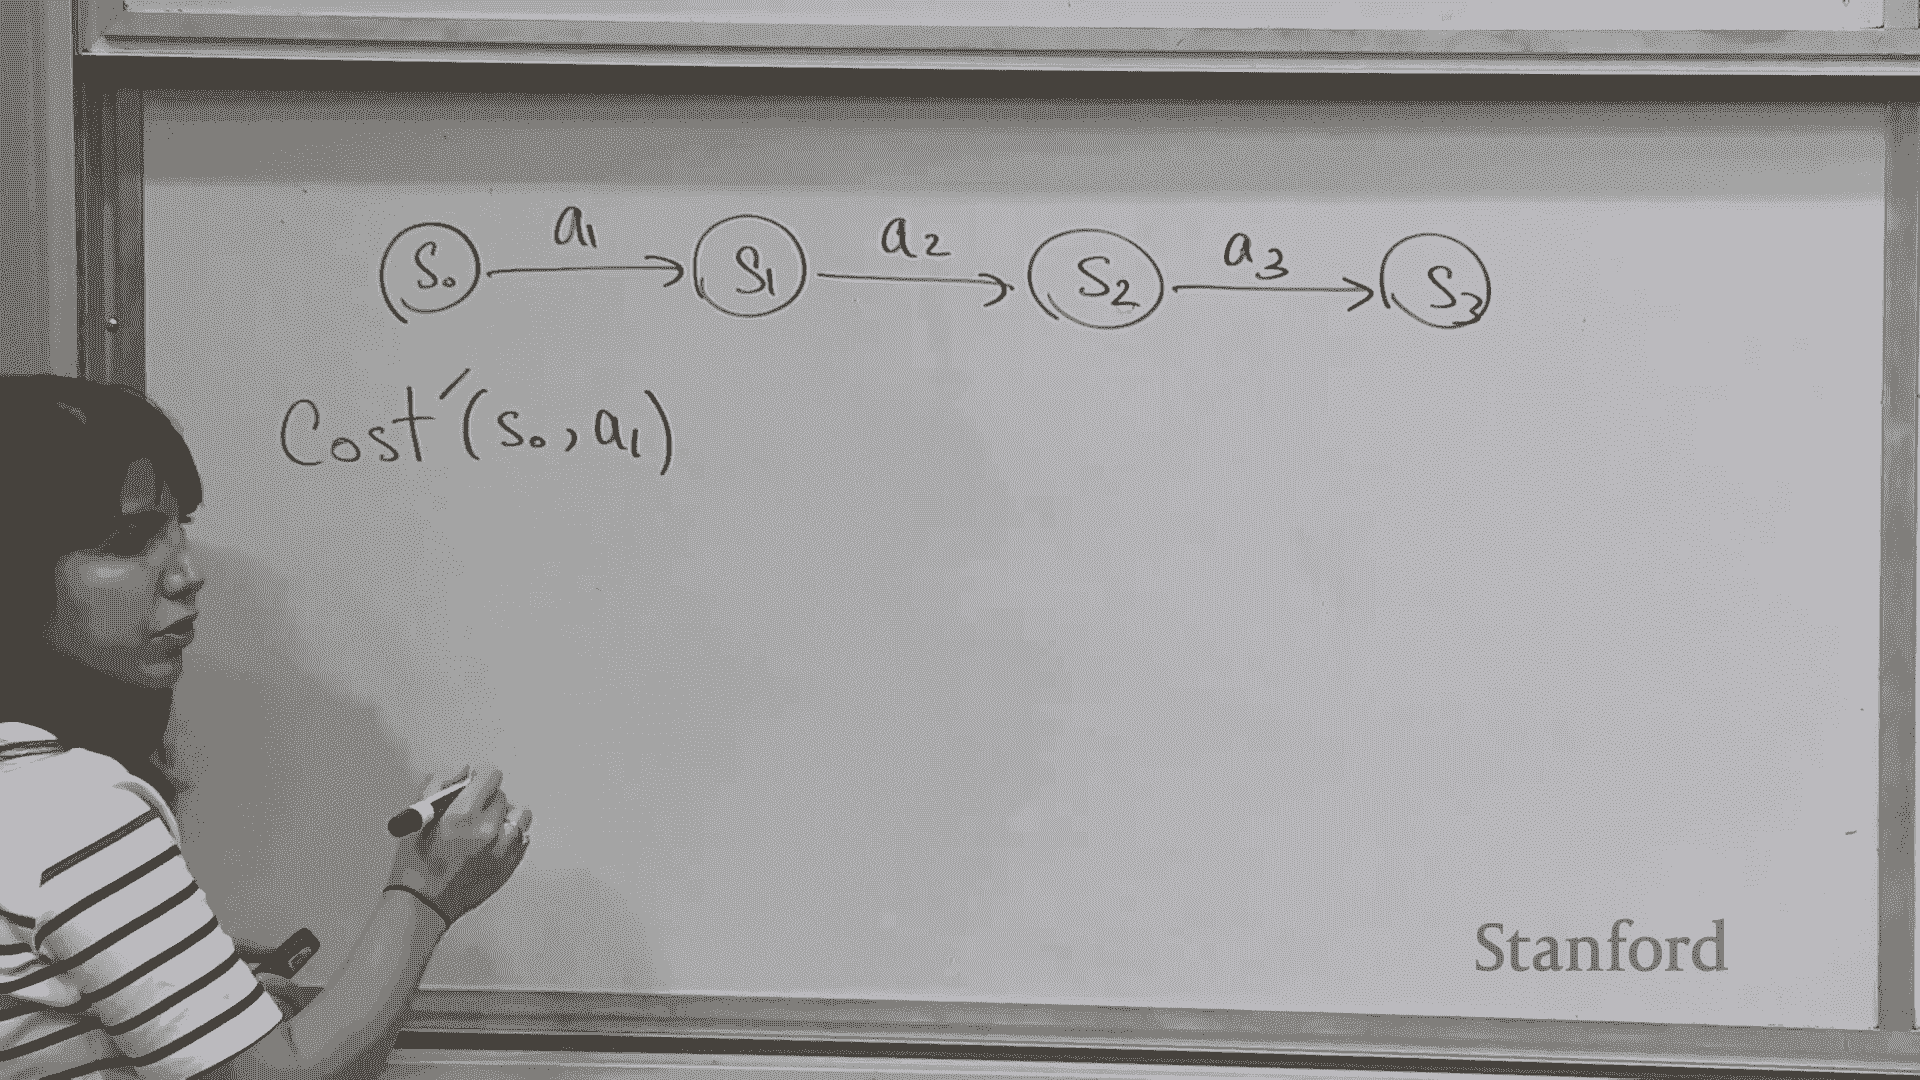 S₀ a₁ S₁ a₂ S₂ a₃ S₃
Cost′(s₀, a₁)
Stanford